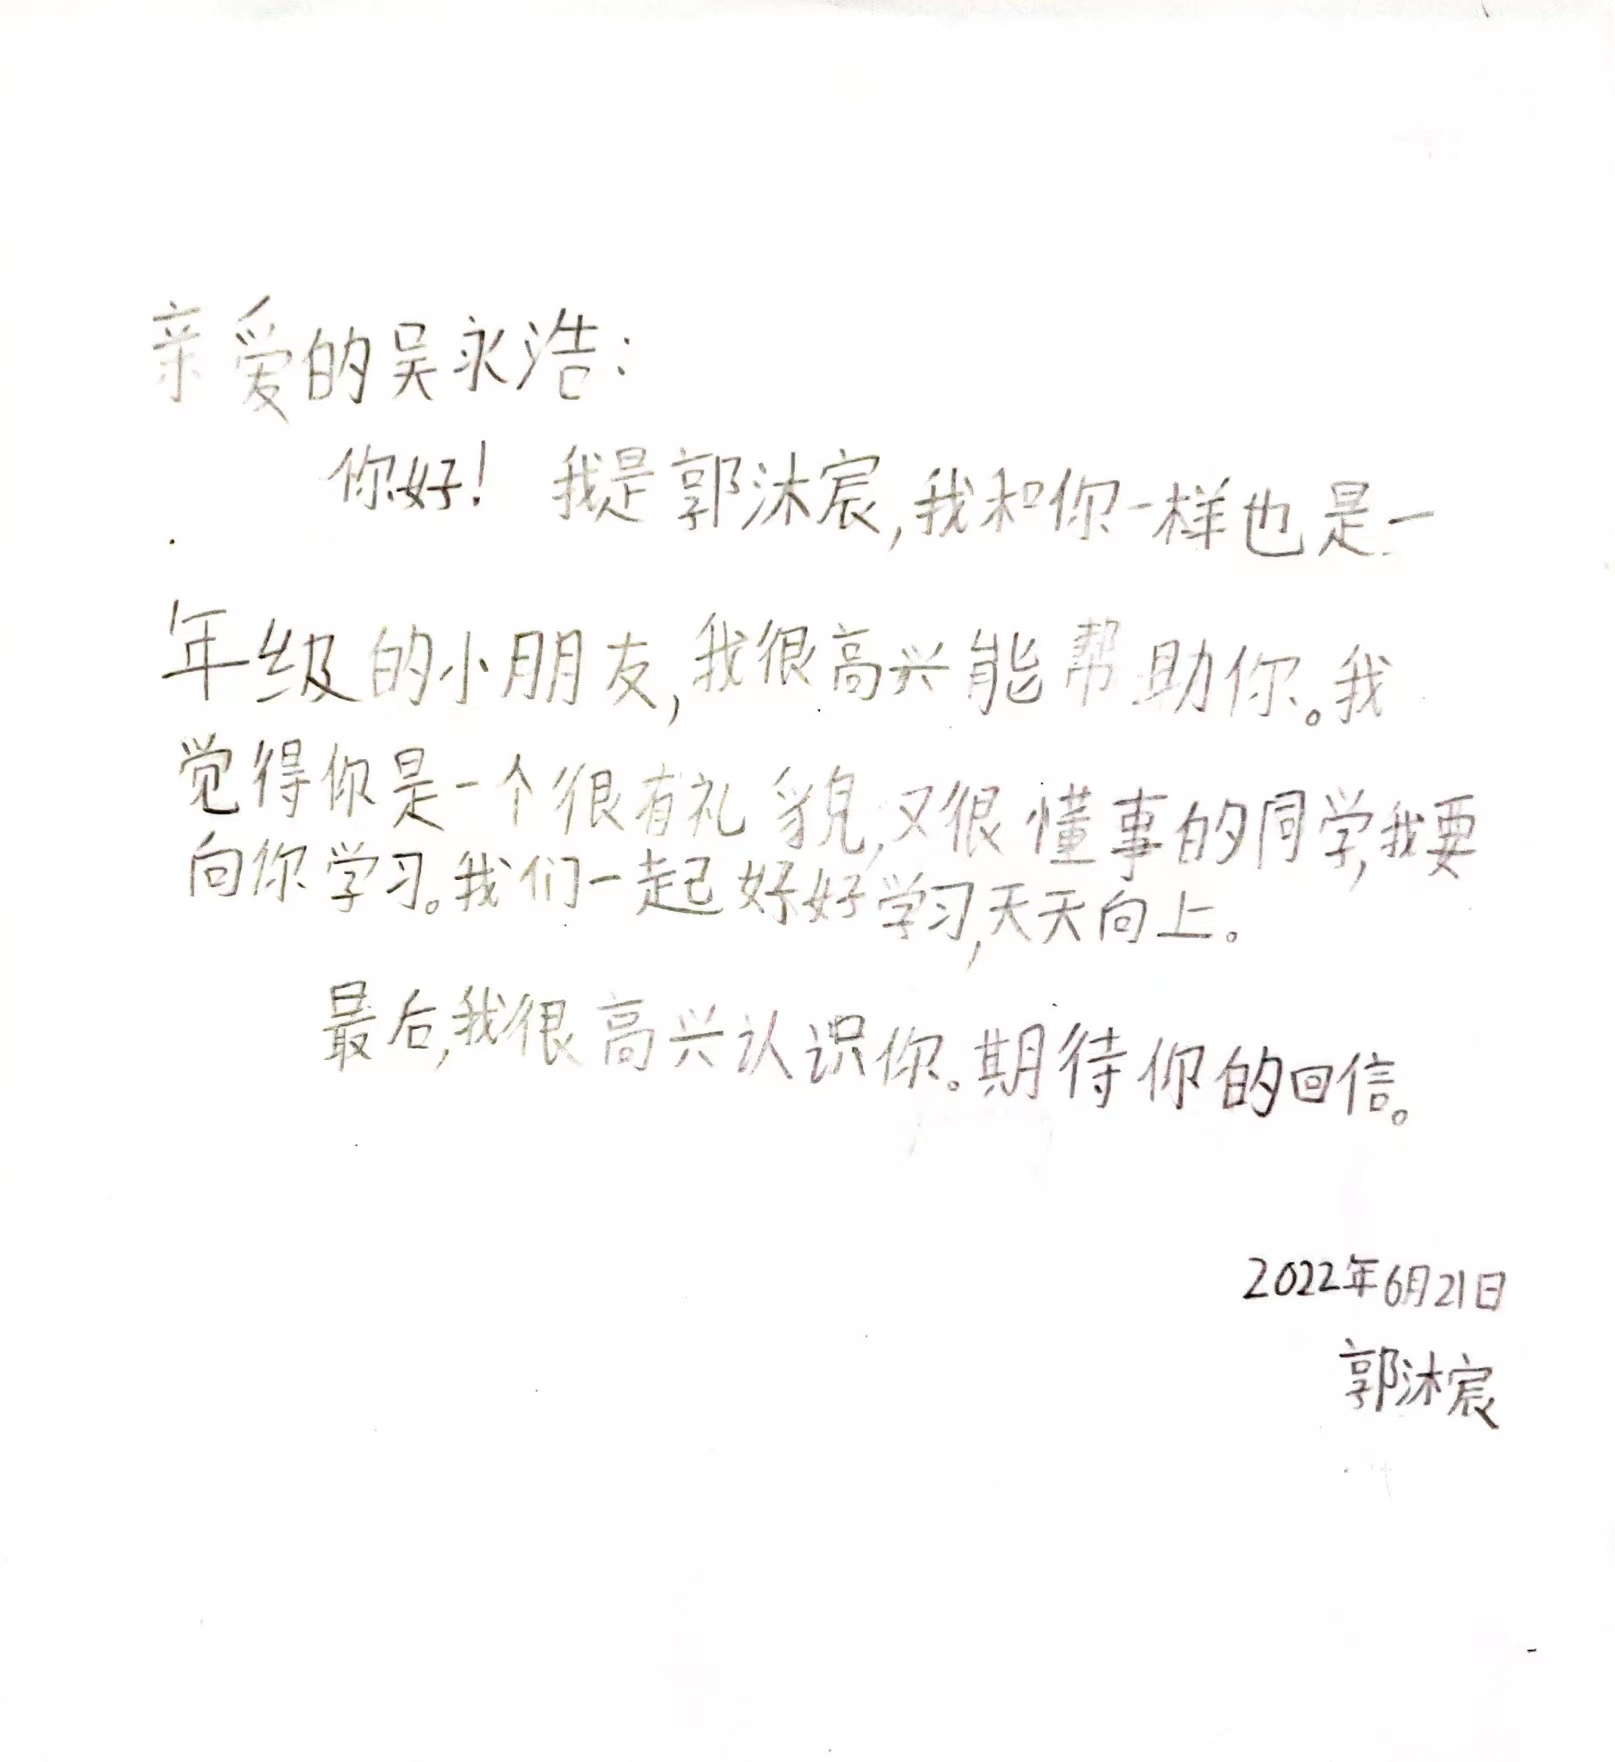 亲爱的吴永浩:
你好! 我是郭沐宸,我和你一样也是一
年级的小朋友,我很高兴能帮助你。我
觉得你是一个很有礼貌,又很懂事的同学,我要
向你学习。我们一起好好学习,天天向上。
最后,我很高兴认识你。期待你的回信。
2022年6月21日
郭沐宸